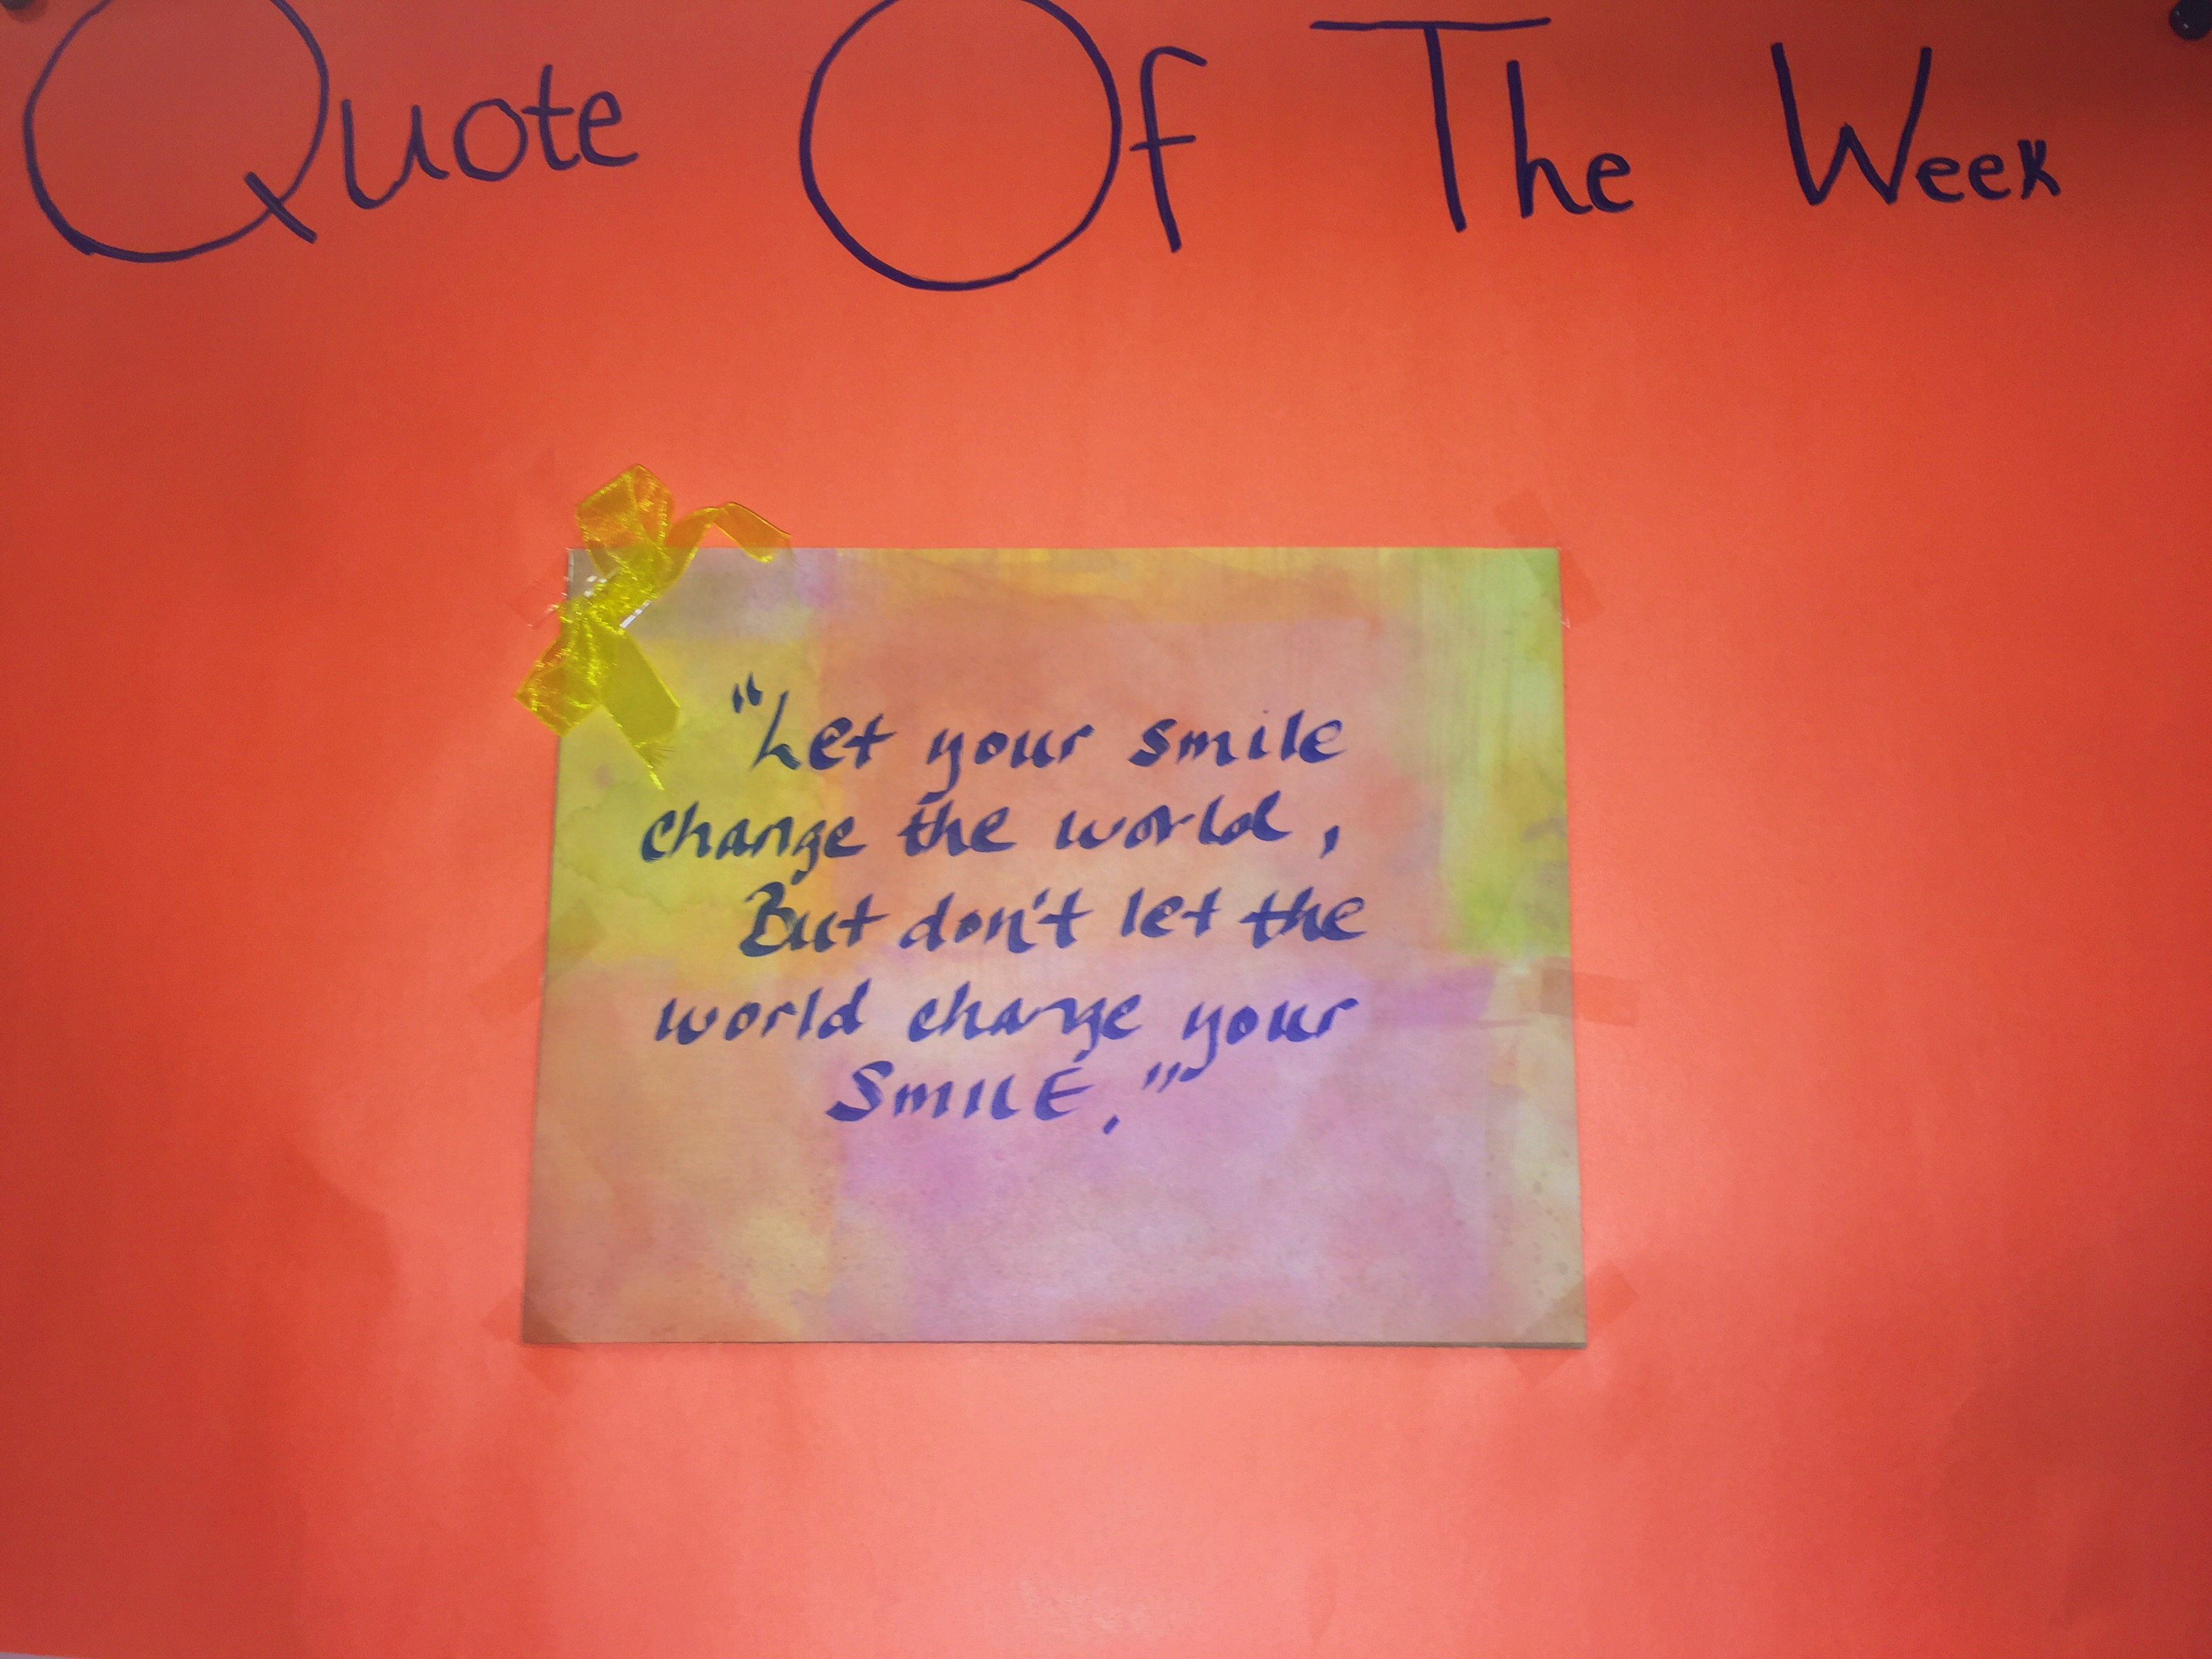 Quote Of The Week
"Let your smile
change the world,
But don't let the
world change your
SmilE."